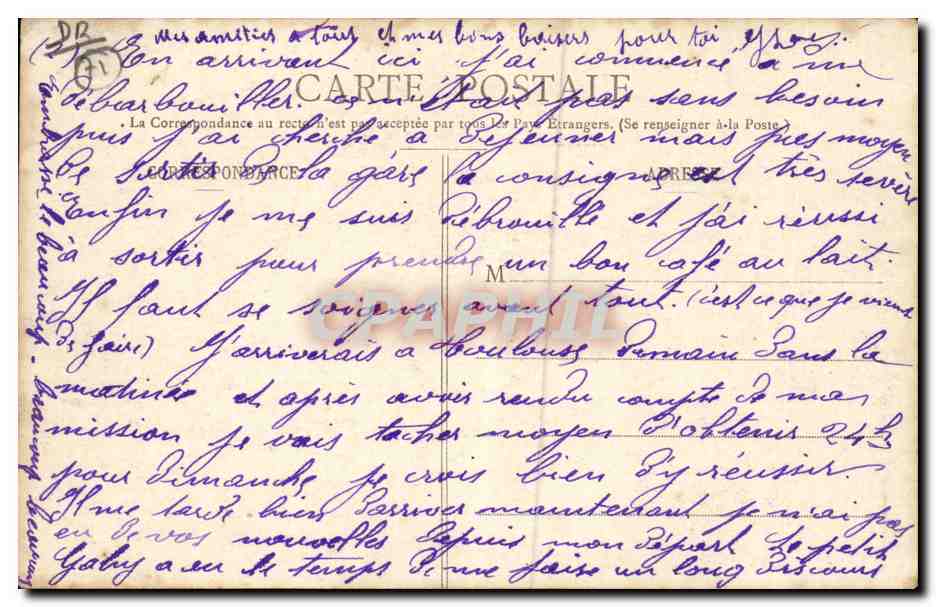 mes amitiés à tous et mes bons baisers pour toi
DR
71
(2) En arrivant ici j'ai commencé à me
CARTE POSTALE
débarbouiller ce n'était pas sans besoin
. La Correspondance au recto n'est pas acceptée par tous les Pays Etrangers. (Se renseigner à la Poste.)
puis j'ai cherché à déjeuner mais pas moyen
CORRESPONDANCE
ADRESSE
de sortir de la gare la consigne est très sevère
Enfin je me suis débrouillé et j'ai réussi
à sortir pour prendre un bon café au lait.
M
Il faut se soigner avant tout. (c'est ce que je viens
CPAPHIL
de faire) J'arriverais à Toulouse demain dans la
matinée et après avoir rendu compte de ma
mission je vais tacher moyen d'obtenir 24 h
pour dimanche je crois bien d'y réussir.
Il me tarde bien d'arriver maintenant je n'ai pas
eu de vos nouvelles depuis mon départ le petit
Gaby a eu le temps de me faire un long discours
embrasse le beaucoup - beaucoup beaucoup